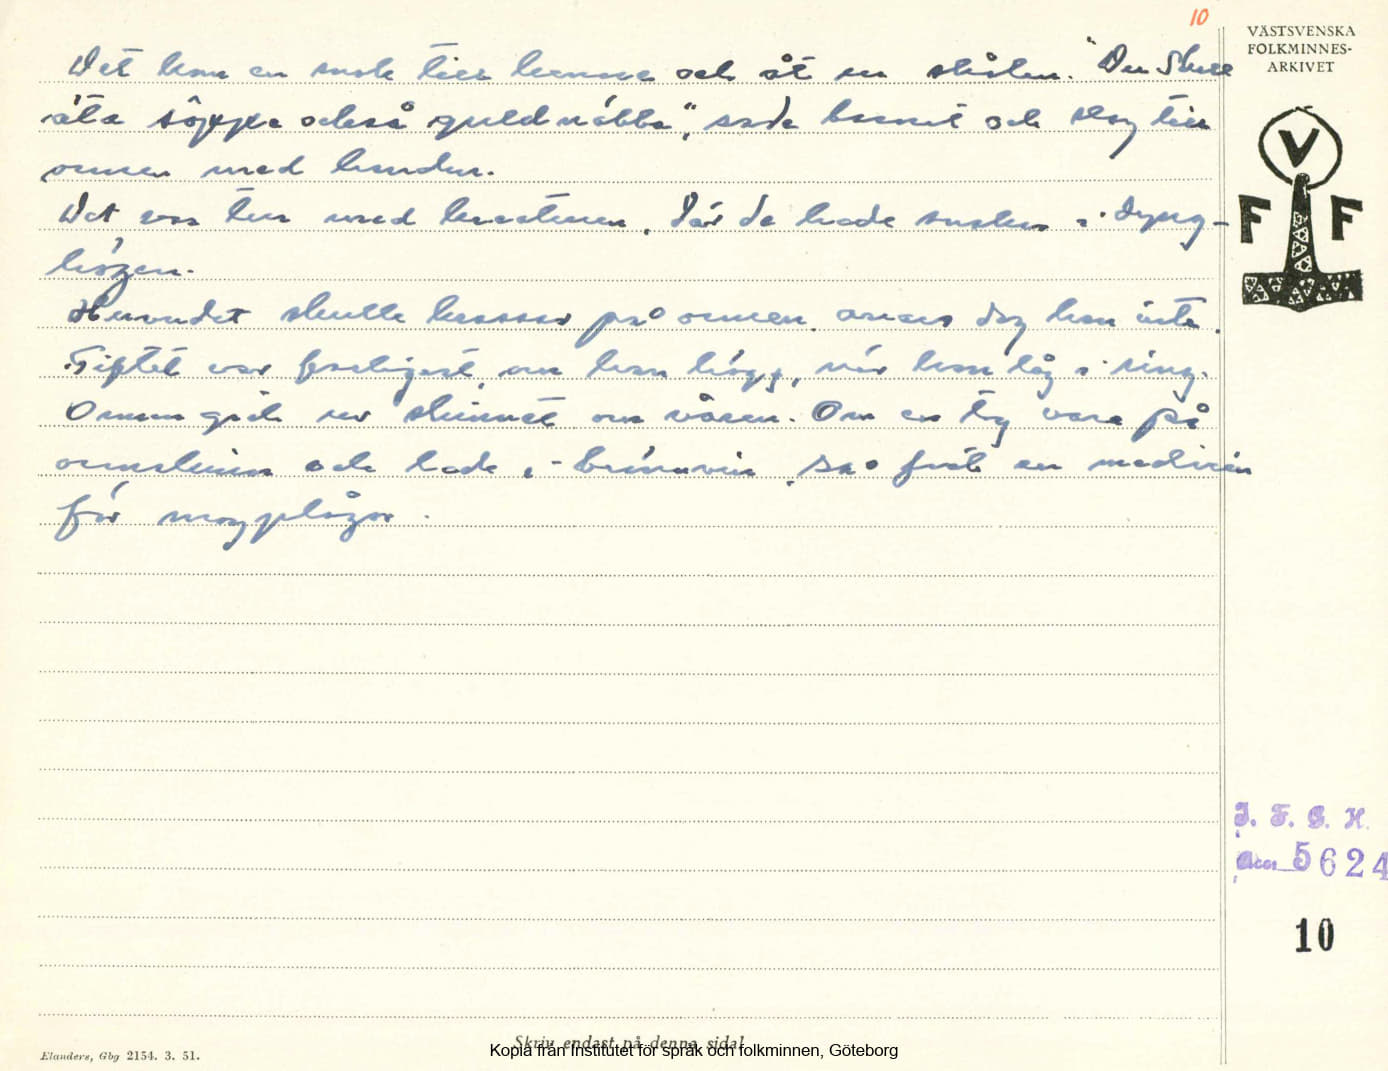 10
VÄSTSVENSKA
FOLKMINNES-
ARKIVET
V
F F
Det kom en snok till henne och åt ur skålen. "Du skall
äta söppa också guldnäbba", sade barnet och slog till
ormen med handen.
Det var tur med kreaturen, där de hade snokar i dyng-
högen.
Huvudet skulle krossas på ormen, annars dog han inte.
Giftet var farligast, om han högg, när han låg i ring.
Ormen gick ur skinnet om våren. Om en tog vara på
ormskinn och lade i brännvin, så fick en medicin
för magplågor.
I. F. G. H.
Acc. 5624
10
Elanders, Gbg 2154. 3. 51.
Skriv endast på denna sida!
Kopia från Institutet för språk och folkminnen, Göteborg